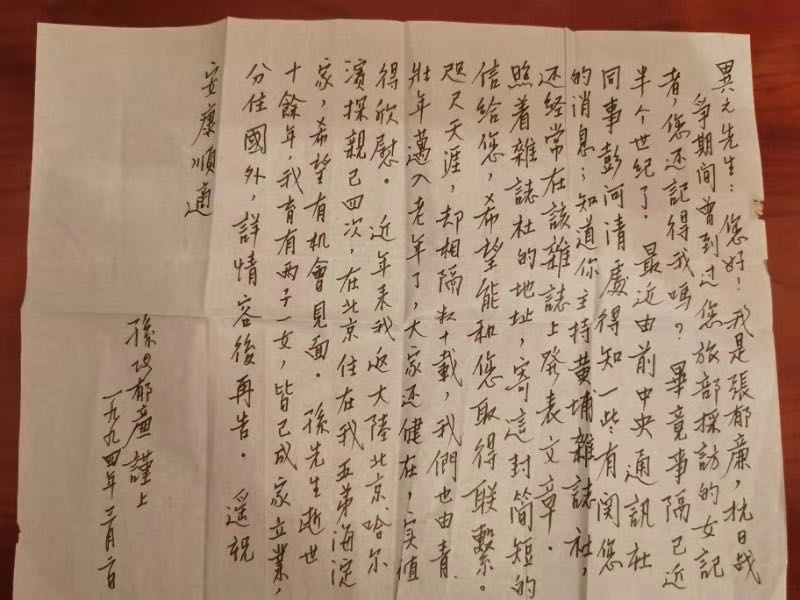 異之先生：您好！我是張郁廉，抗日战
爭期间曾到过您旅部採訪的女記
者，您还記得我嗎？畢竟事隔已近
半个世紀了．最近由前中央通訊社
同事彭河清處得知一些有関您
的消息；知道你主持黃埔雜誌社，
还经常在该雜誌上發表文章．
照着雜誌社的地址，寄這封简短的
信给您，希望能和您取得联繫。
咫尺天涯，却相隔数十載，我們也由青
壯年邁入老年了，大家还健在，实值
得欣慰．近年来我返大陸北京哈尔
濱探親已四次，在北京住在我五弟海淀
家，希望有机會見面．孫先生逝世
十餘年，我育有两子一女，皆已成家立業，
分住國外，詳情容後再告．遥祝
安康順適
孫張郁廉謹上
一九九四年三月二日